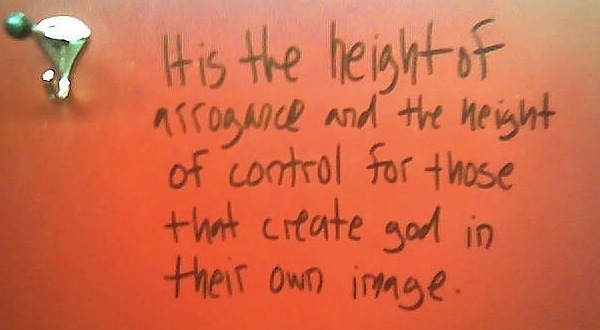 It is the height of
arrogance and the height
of control for those
that create god in
their own image.